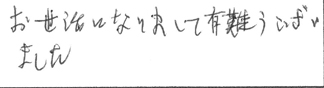 お世話になりまして有難うござい
ました